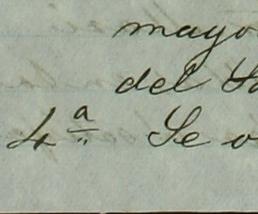 mayo
del Sa
4ª Se o